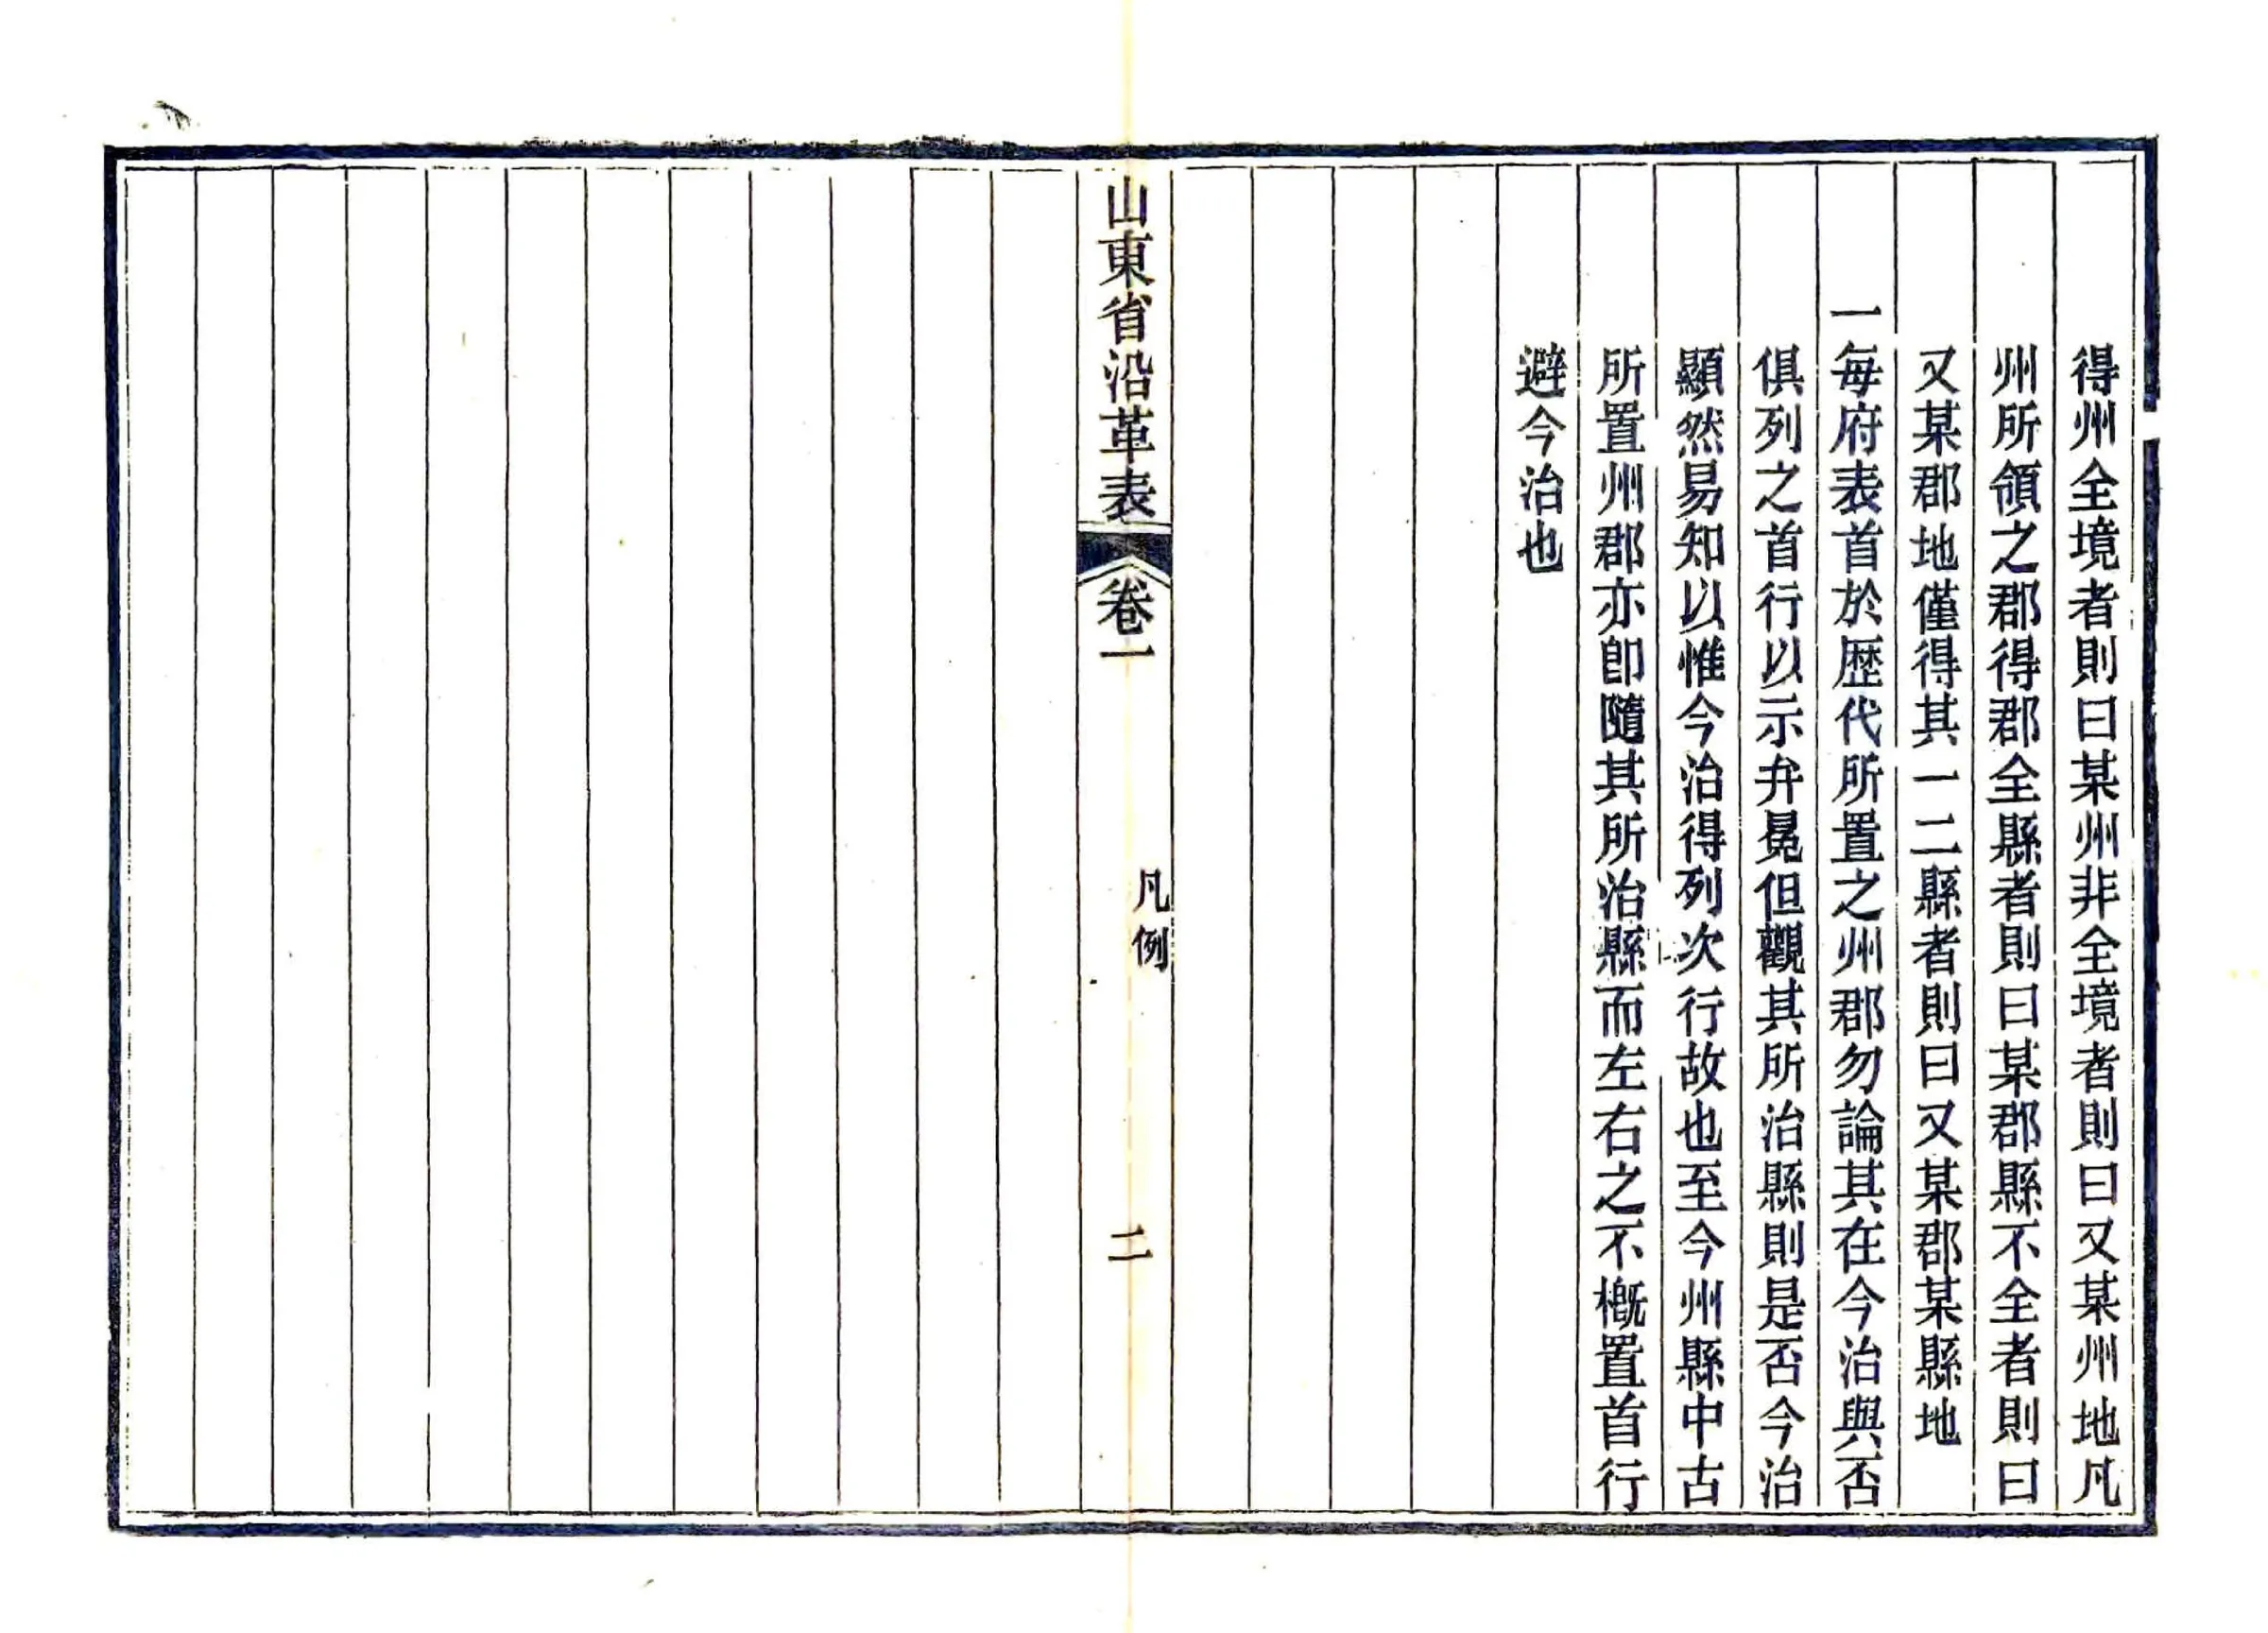 得州全境者則曰某州非全境者則曰又某州地凡
州所領之郡得郡全縣者則曰某郡縣不全者則曰
又某郡地僅得其一二縣者則曰又某郡某縣地
一每府表首於歷代所置之州郡勿論其在今治與否
俱列之首行以示弁冕但觀其所治縣則是否今治
顯然易知以惟今治得列次行故也至今州縣中古
所置州郡亦卽隨其所治縣而左右之不槪置首行
避今治也
山東省沿革表
卷一
凡例
二